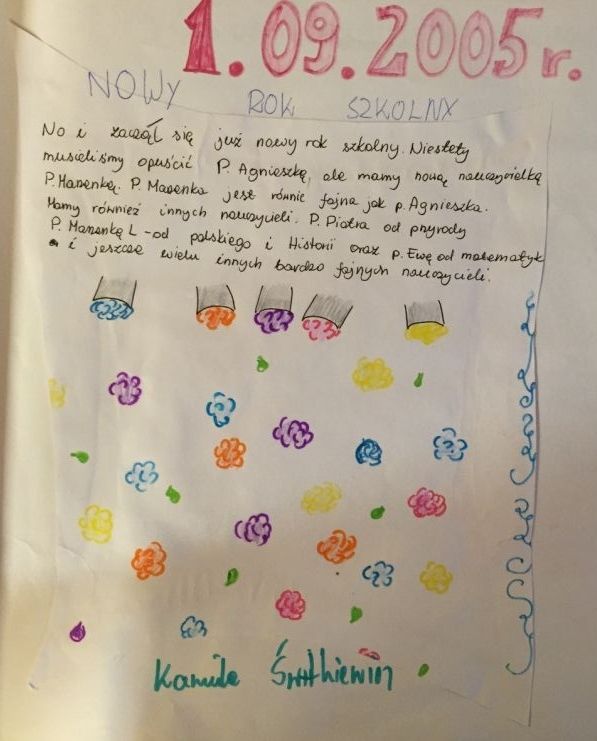 1.09.2005r.
NOWY ROK SZKOLNY
No i zaczął się już nowy rok szkolny. Niestety
musieliśmy opuścić P. Agnieszkę, ale mamy nową nauczycielkę
P. Marenkę. P. Marenka jest równie fajna jak p. Agnieszka.
Mamy również innych nauczycieli. P. Piotra od pryrody
P. Marenkę L - od polskiego i Historii oraz p. Ewę od matematyk
i jeszcze wielu innych bardzo fajnych nauczycieli.
Kamila